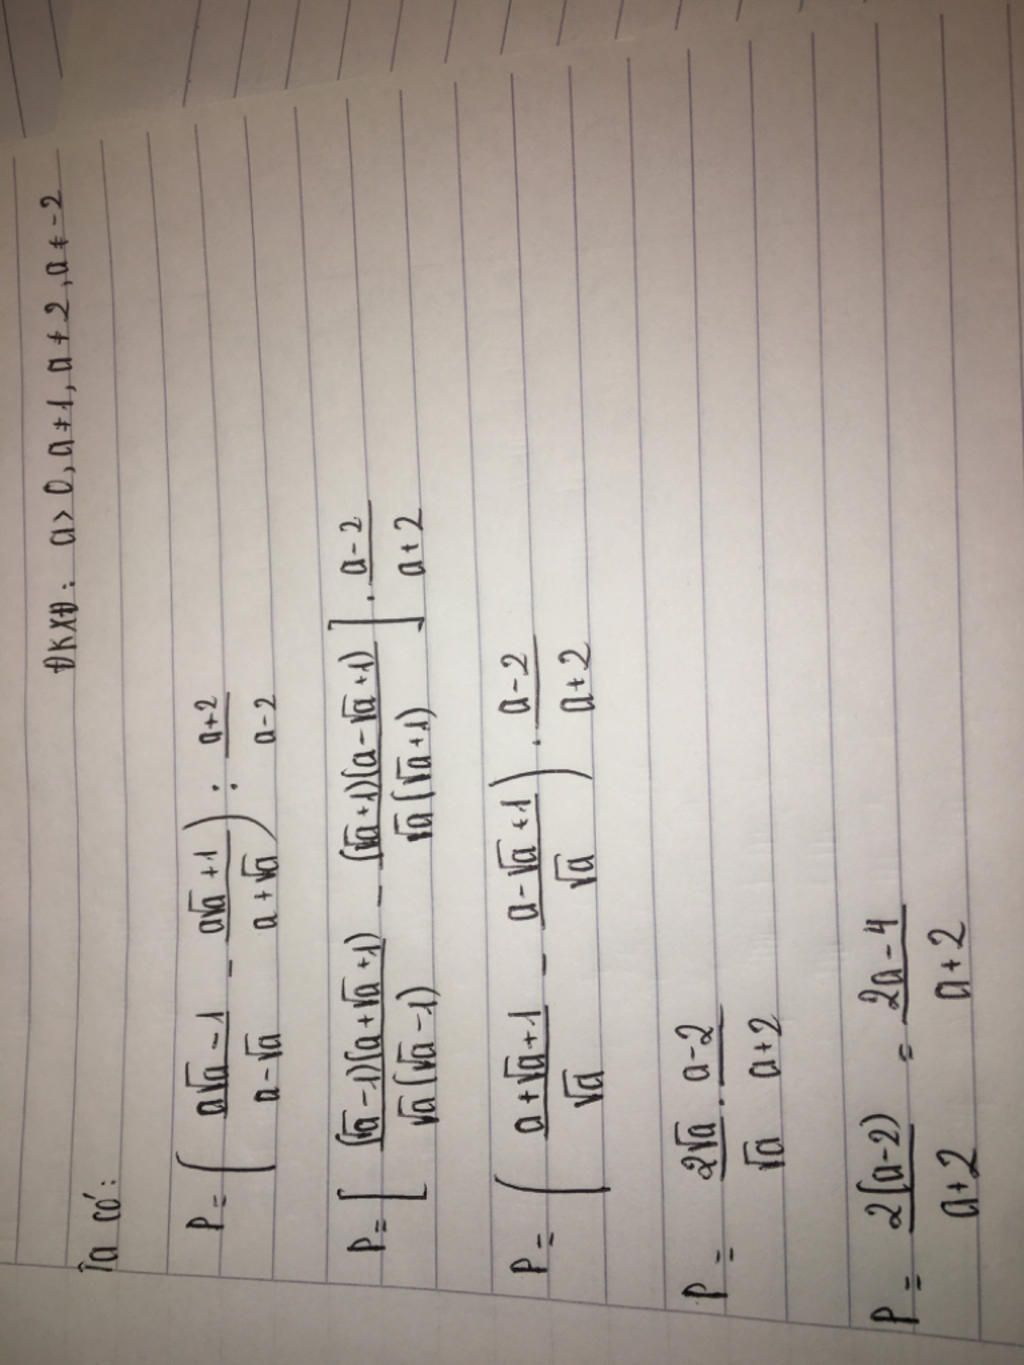 ĐKXĐ: a > 0, a ≠ 1, a ≠ 2, a ≠ -2
Ta có:
P = ( (a√a - 1)/(a - √a) - (a√a + 1)/(a + √a) ) : (a+2)/(a-2)
P = [ (√a - 1)(a + √a + 1)/(√a(√a - 1)) - (√a + 1)(a - √a + 1)/(√a(√a + 1)) ] . (a - 2)/(a + 2)
P = ( (a + √a + 1)/√a - (a - √a + 1)/√a ) . (a - 2)/(a + 2)
P = 2√a/√a . (a - 2)/(a + 2)
P = 2(a - 2)/(a + 2) = (2a - 4)/(a + 2)